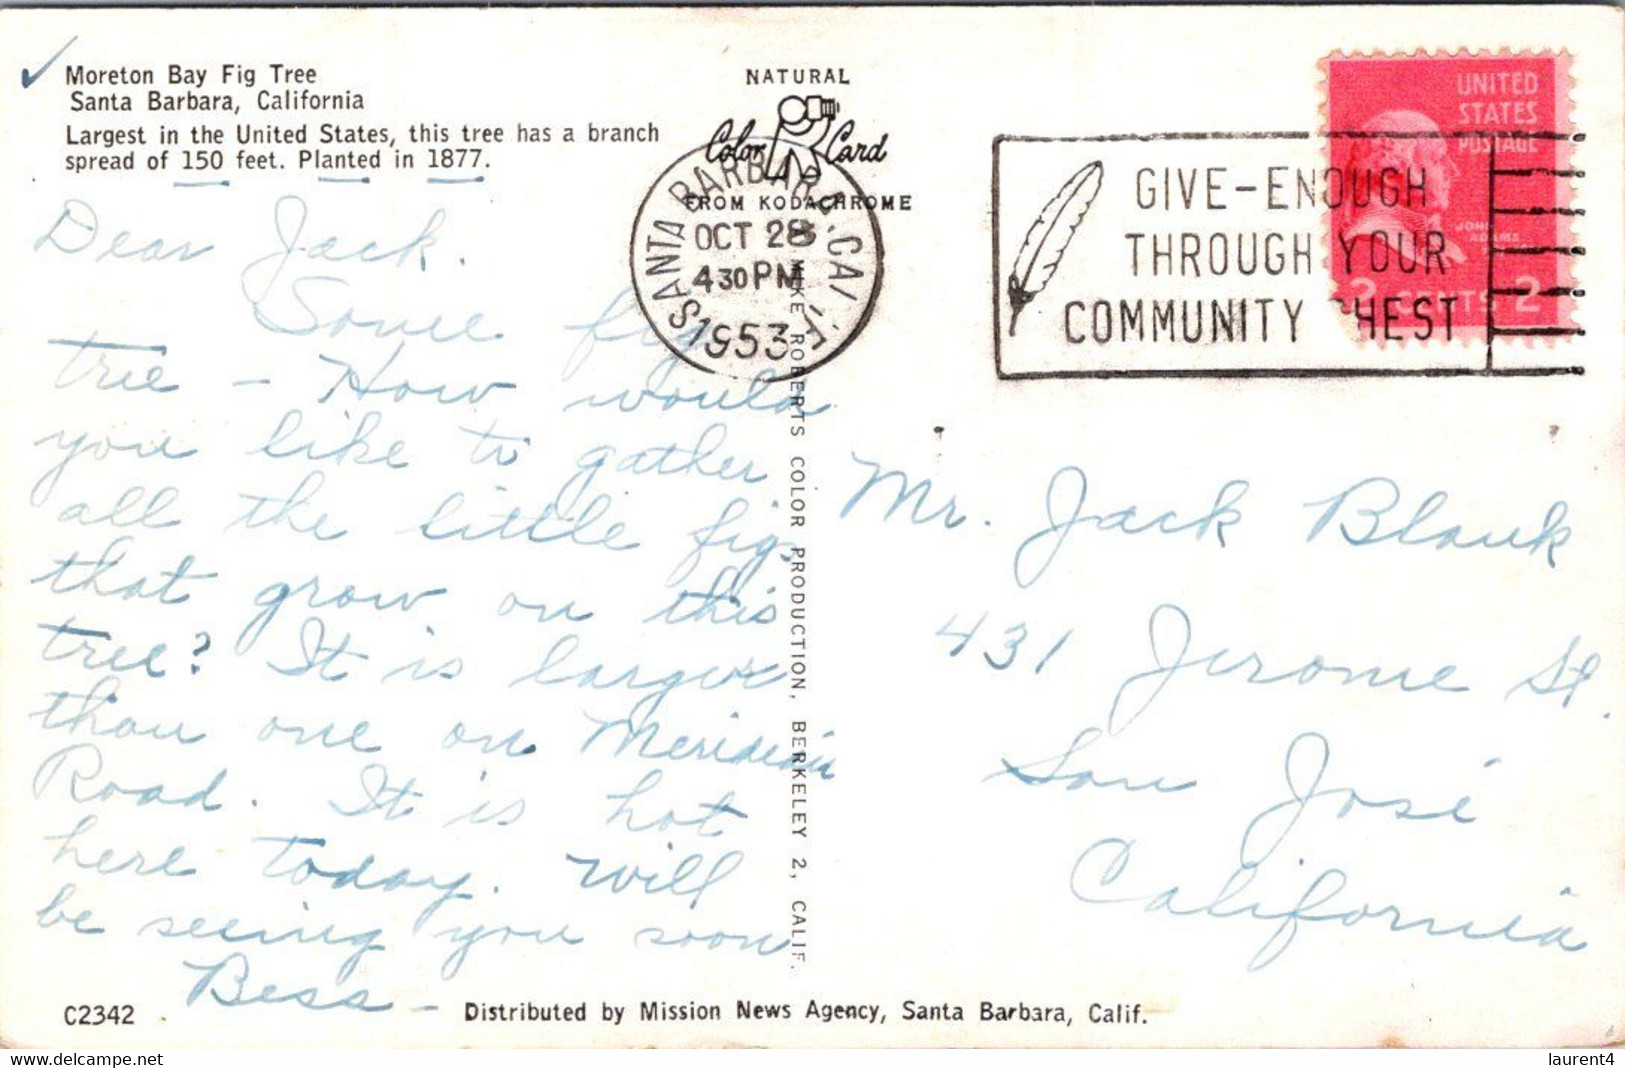 Moreton Bay Fig Tree
Santa Barbara, California
Largest in the United States, this tree has a branch
spread of 150 feet. Planted in 1877.
NATURAL
Color Card
FROM KODACHROME
SANTA BARBARA, CALIF.
OCT 28
4 30 PM
1953
GIVE-ENOUGH
THROUGH YOUR
COMMUNITY CHEST
UNITED
STATES
POSTAGE
JOHN
ADAMS
2 CENTS 2
Dear Jack.
Some fig
tree - How would
you like to gather
all the little figs
that grow on this
tree? It is larger
than one on Meridian
Road. It is hot
here today. Will
be seeing you soon
Bess -
MIKE ROBERTS COLOR PRODUCTION, BERKELEY 2, CALIF.
Mr. Jack Blank
431 Jerome St.
San José
California
C2342
Distributed by Mission News Agency, Santa Barbara, Calif.
delcampe.net
laurent4